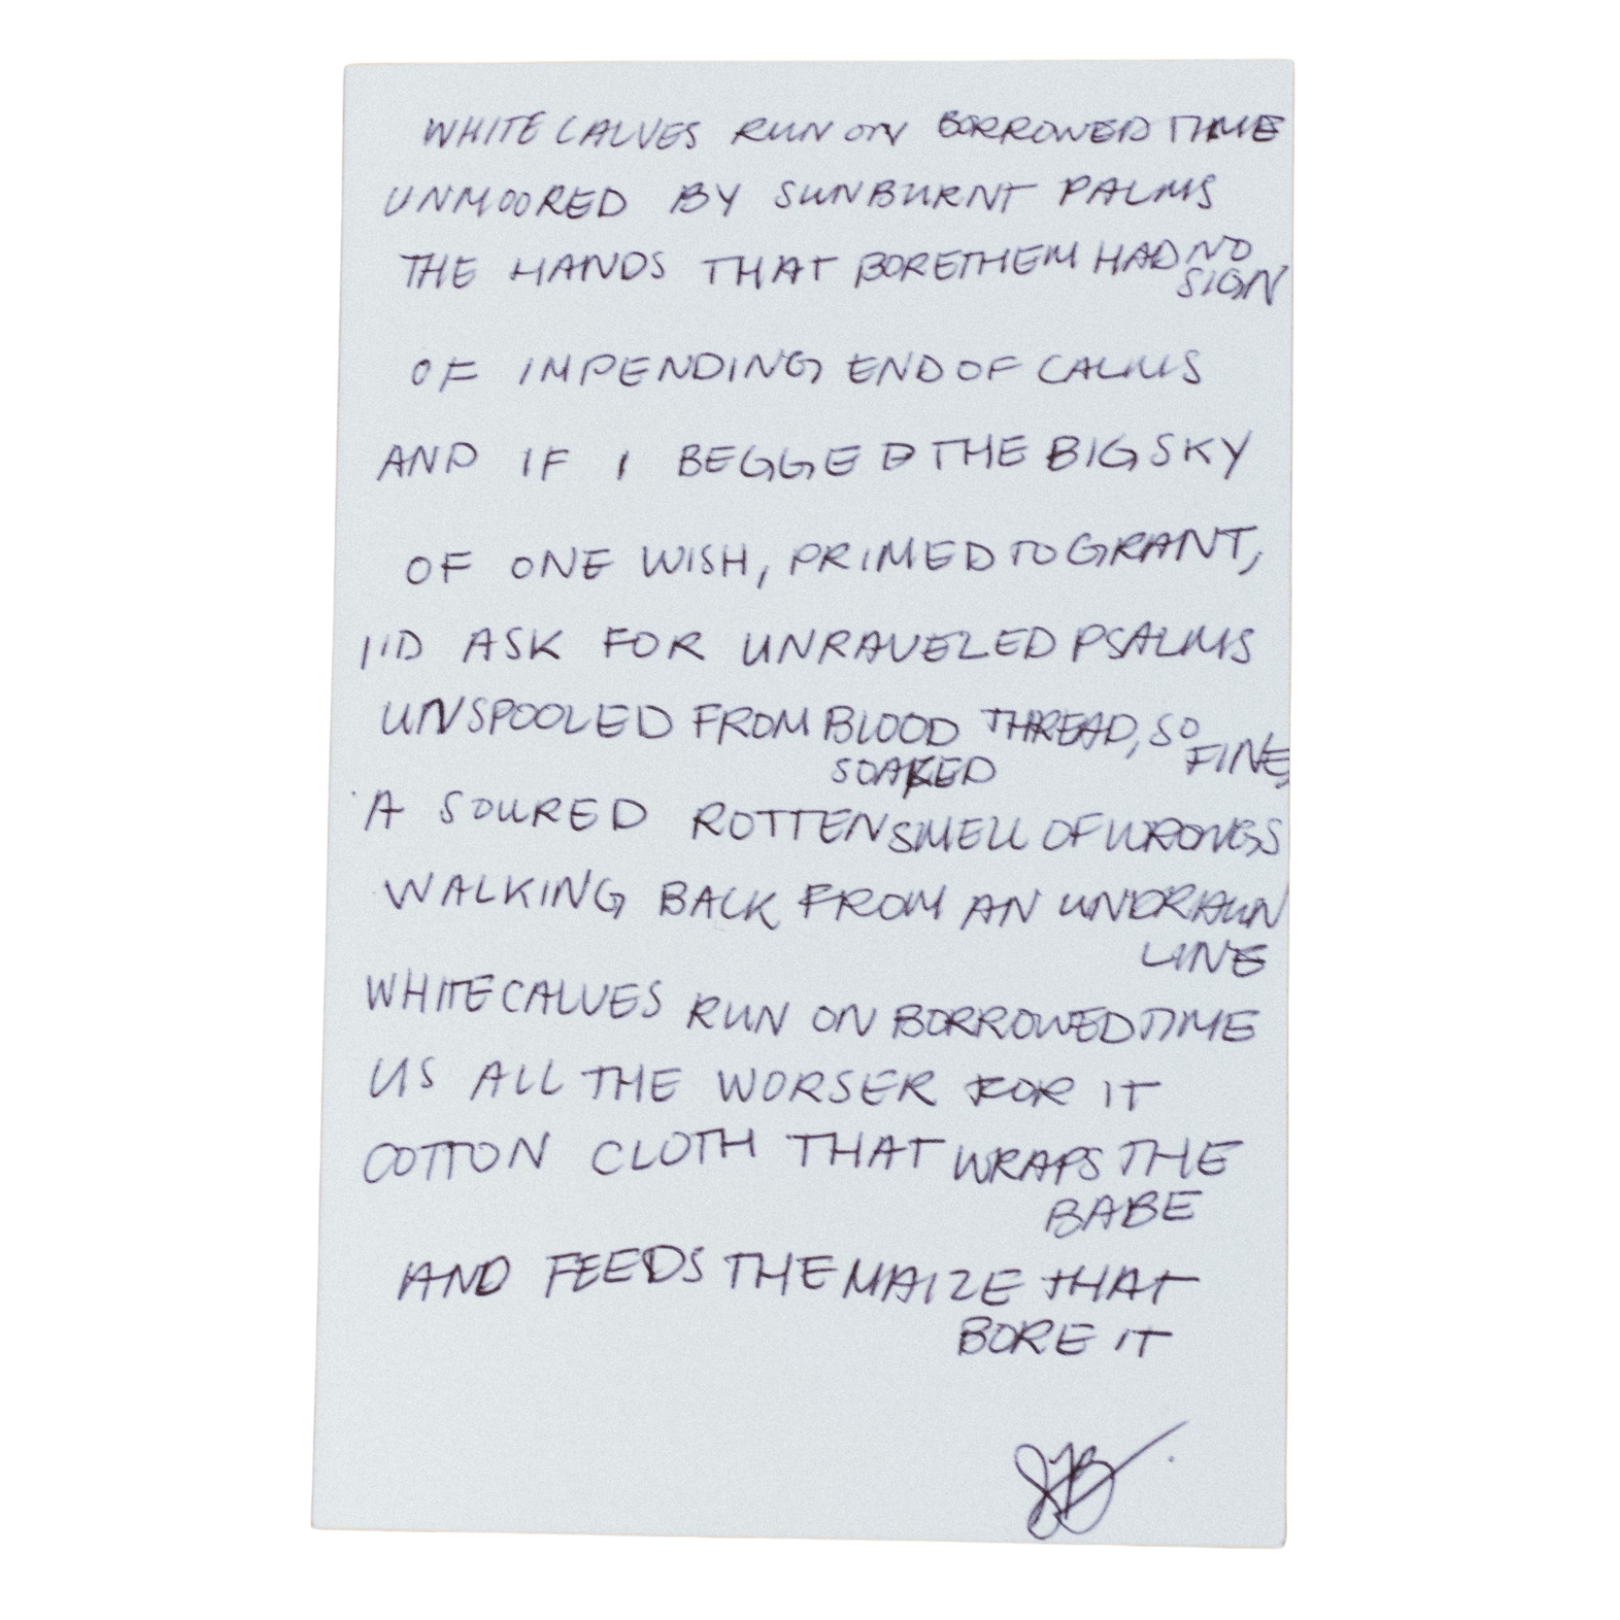 WHITE CALVES RUN ON BORROWED TIME
UNMOORED BY SUNBURNT PALMS
THE HANDS THAT BORE THEM HAD NO
SIGN
OF IMPENDING END OF CALMS
AND IF I BEGGED THE BIG SKY
OF ONE WISH, PRIMED TO GRANT,
I'D ASK FOR UNRAVELED PSALMS
UNSPOOLED FROM BLOOD THREAD, SO
SOAKED FINE,
A SOURED ROTTEN SMELL OF WRONGS
WALKING BACK FROM AN UNDRAWN
LINE
WHITE CALVES RUN ON BORROWED TIME
US ALL THE WORSER FOR IT
COTTON CLOTH THAT WRAPS THE
BABE
AND FEEDS THE MAIZE THAT
BORE IT